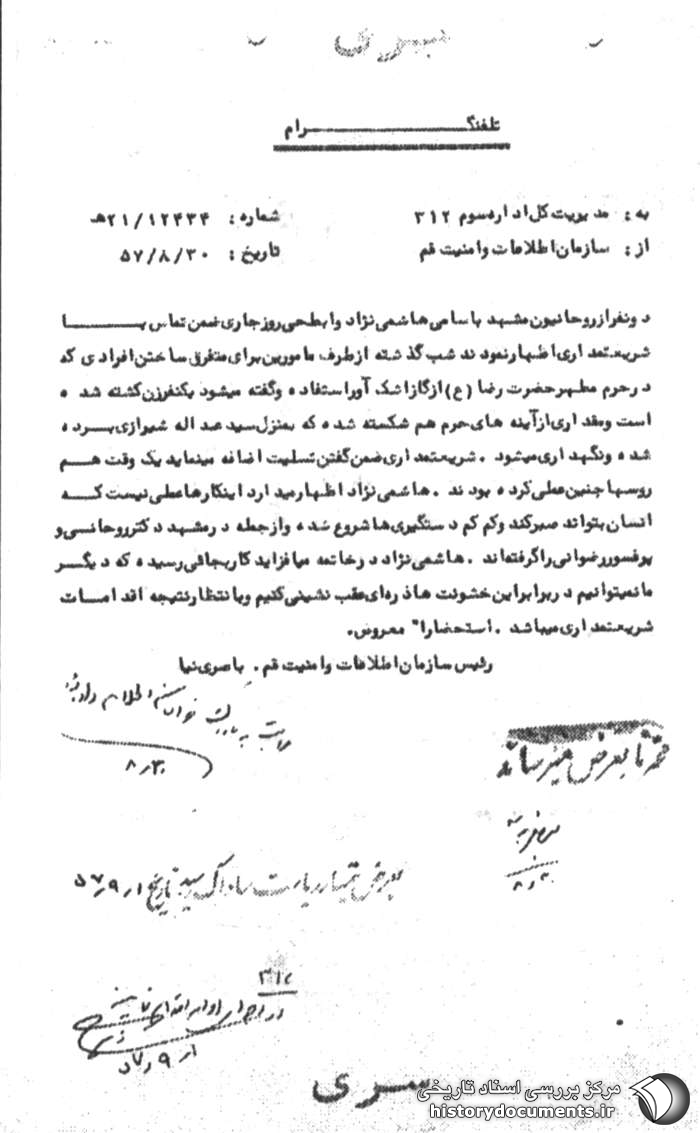 سری
تلفنگرام
به : مدیریت کل اداره سوم ۳۱۲
شماره : ۲۱/۱۲۴۳۴ هـ
از : سازمان اطلاعات و امنیت قم
تاریخ : ۵۷/۸/۳۰
دونفر از روحانیون مشهد باسامی هاشمی نژاد و ابطحی روز جاری ضمن تماس با
شریعتمداری اظهار نمودند شب گذشته از طرف مامورین برای متفرق ساختن افرادی که
در حرم مطهر حضرت رضا (ع) از گاز اشک آور استفاده و گفته میشود یکنفر زن کشته شده
است و مقداری از آینه های حرم هم شکسته شده که بمنزل سید عبداله شیرازی برده
شده و نگهداری میشود . شریعتمداری ضمن گفتن تسلیت اضافه مینماید یک وقت هم
روسها چنین عملی کرده بودند . هاشمی نژاد اظهار میدارد اینکارها عملی نیست که
انسان بتواند صبر کند و کم کم دستگیری ها شروع شده و از جمله در مشهد دکتر روحانی و
پرفسور رضوانی را گرفته اند . هاشمی نژاد در خاتمه میافزاید کار بجائی رسیده که دیگر
ما نمیتوانیم در برابر این خشونت ها ذره ای عقب نشینی کنیم و بانتظار نتیجه اقدامات
شریعتمداری میباشد . استحضارا" معروض .
رئیس سازمان اطلاعات و امنیت قم . باصری نیا
۸٫۳۰
بعرض میرساند
۸٫۳۰
بعرض تیمسار ریاست ساواک رسید تاریخ ۵۷٫۹٫۱
۳۱۲
۵۷٫۹٫۱
سری
مرکز بررسی اسناد تاریخی
historydocuments.ir